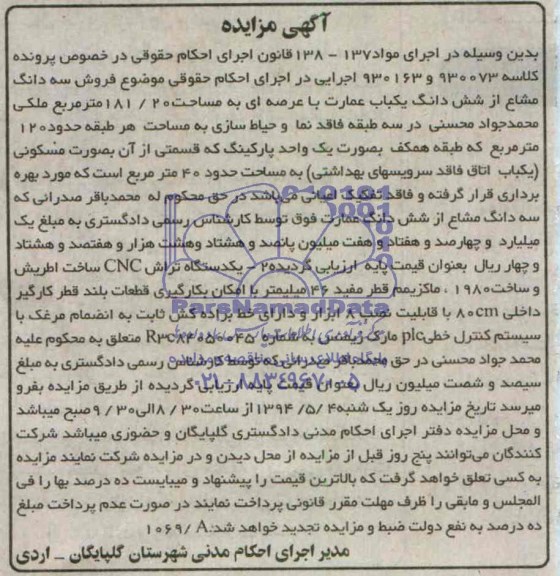 آگهی مزایده
بدین وسیله در اجرای مواد۱۳۷ - ۱۳۸قانون اجرای احکام حقوقی در خصوص پرونده
کلاسه ۹۳۰۰۷۳ و ۹۳۰۱۶۳ اجرایی در اجرای احکام حقوقی موضوع فروش سه دانگ
مشاع از شش دانگ یکباب عمارت با عرصه ای به مساحت۲۰ / ۱۸۱مترمربع ملکی
محمدجواد محسنی در سه طبقه فاقد نما و حیاط سازی به مساحت هر طبقه حدود۱۲۰
مترمربع که طبقه همکف بصورت یک واحد پارکینگ که قسمتی از آن بصورت مسکونی
(یکباب اتاق فاقد سرویسهای بهداشتی) به مساحت حدود ۴۰ متر مربع است که مورد بهره
برداری قرار گرفته و فاقد تفکیک اعیانی می‌باشد در حق محکوم له محمدباقر صدرائی که
سه دانگ مشاع از شش دانگ عمارت فوق توسط کارشناس رسمی دادگستری به مبلغ یک
میلیارد و چهارصد و هفتاد و هفت میلیون پانصد و هشتاد وهشت هزار و هفتصد و هشتاد
و چهار ریال بعنوان قیمت پایه ارزیابی گردیده۲ - یکدستگاه تراش CNC ساخت اطریش
و ساخت۱۹۸۰ ، ماکزیمم قطر مفید ۴۶ میلیمتر با امکان بکارگیری قطعات بلند قطر کارگیر
داخلی ۸۰cm با قابلیت نصب ۸ ابزار و دارای خط براده کش ثابت به انضمام مرغک با
سیستم کنترل خطیplc مارک زیمنس به شماره متعلق به محکوم علیه
محمد جواد محسنی در حق محمدباقر صدرائی که توسط کارشناس رسمی دادگستری به مبلغ
سیصد و شصت میلیون ریال بعنوان قیمت پایه ارزیابی گردیده از طریق مزایده بفرو
میرسد تاریخ مزایده روز یک شنبه۴ /۵/ ۱۳۹۴ از ساعت۳۰ / ۸الی۳۰ / ۹صبح میباشد
و محل مزایده دفتر اجرای احکام مدنی دادگستری گلپایگان و حضوری میباشد شرکت
کنندگان می‌توانند پنج روز قبل از مزایده از محل دیدن و در مزایده شرکت نمایند مزایده
به کسی تعلق خواهد گرفت که بالاترین قیمت را پیشنهاد و میبایست ده درصد بها را فی
المجلس و مابقی را ظرف مهلت مقرر قانونی پرداخت نمایند در صورت عدم پرداخت مبلغ
ده درصد به نفع دولت ضبط و مزایده تجدید خواهد شد.۱۰۶۹/ A
مدیر اجرای احکام مدنی شهرستان گلپایگان _ اردی
ParsNamadData
۰۲۱-۸۸۳۴۹۶۷۰-۵